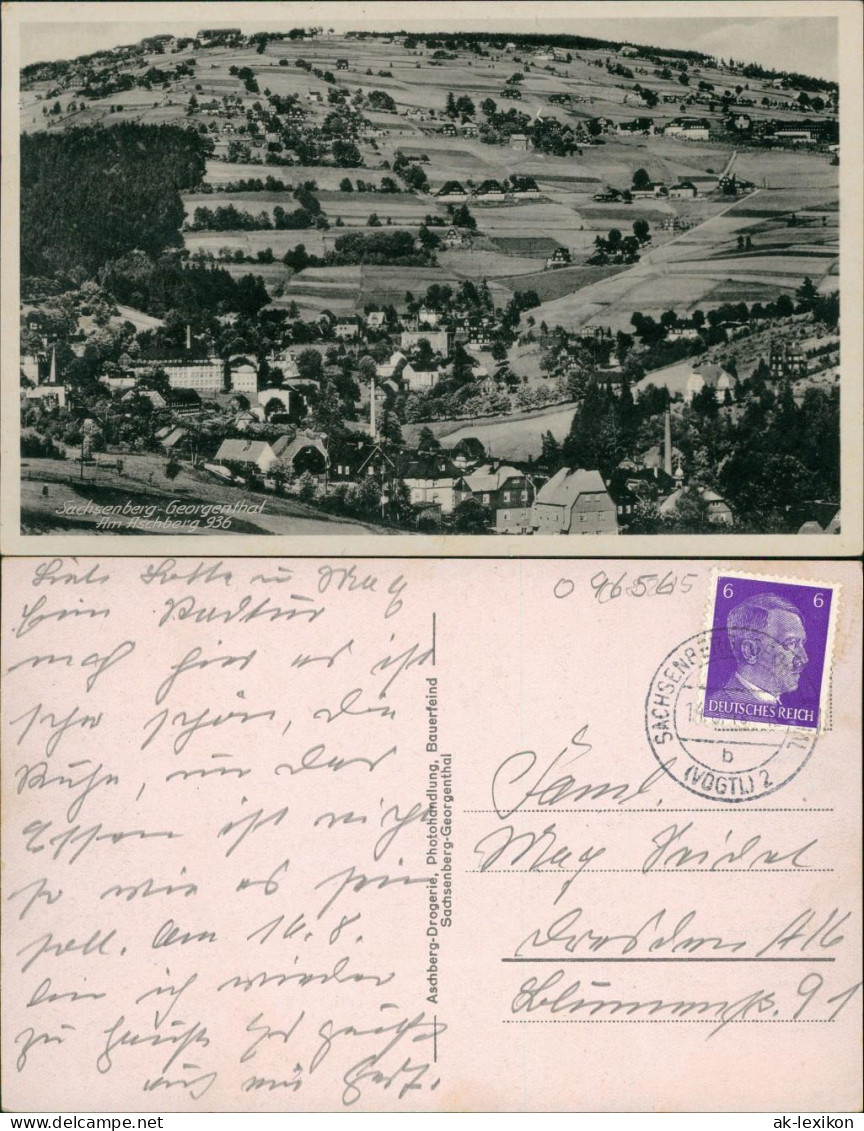 Sachsenberg-Georgenthal
Am Aschberg 936
Liebe Lotte u Max
Eine Radtur
nach hier es ist
sehr schön, die
Ruhe, nur das
Essen ist nicht
so wie es sein
soll. Am 16.8.
bin ich wieder
zu Hause
Aschberg-Drogerie, Photohandlung, Bauerfeind
Sachsenberg-Georgenthal
096565
6 6
DEUTSCHES REICH
SACHSENBERG
b
(VOGTL) 2
Faml.
Max Seidel
Dresden A16
Blumenstr. 91
ak-lexikon